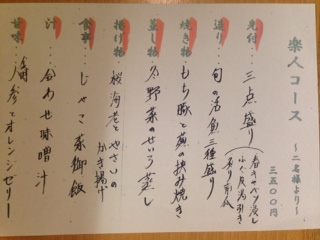 楽人コース
～二名様より～
三五〇〇円
先付…三点盛り
造り…旬の活魚三種盛り
焼き物…もち豚と蕪の挟み焼き
蒸し物…冬野菜のせいろ蒸し
揚げ物…桜海老とやさいのかき揚げ
食事…じゃこ菜御飯
汁…合わせ味噌汁
甘味…オレンジゼリー